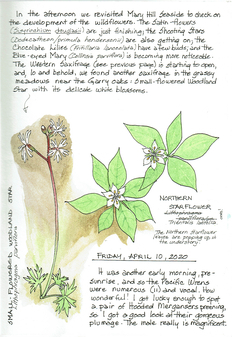 In the afternoon we revisited Mary Hill Seaside to check on
the development of the wildflowers. The Satin-flowers
(Sisyrinchium douglasii) are just finishing; the Shooting Stars
(Dodecatheon/primula hendersonii) are also getting on; the
Chocolate Lilies (Fritillaria lanceolata) have a few buds; and the
Blue-eyed Mary (Collinsia parviflora) is becoming more noticeable.
The Western Saxifrage (see previous page) is starting to open,
and, lo and behold, we found another saxifrage in the grassy
meadows near the Garry oaks: Small-flowered Woodland
Star with its delicate white blossoms.
SMALL-FLOWERED WOODLAND STAR
Lithophragma parviflorum
NORTHERN
STARFLOWER
Trientalis
The Northern Starflower
leaves are popping up in
the understory.
FRIDAY, APRIL 10, 2020
It was another early morning, pre-
sunrise, and so the Pacific Wrens
were numerous (11) and vocal. How
wonderful! I got lucky enough to spot
a pair of Hooded Mergansers preening,
so I got a good look at their gorgeous
plumage. The male really is magnificent.